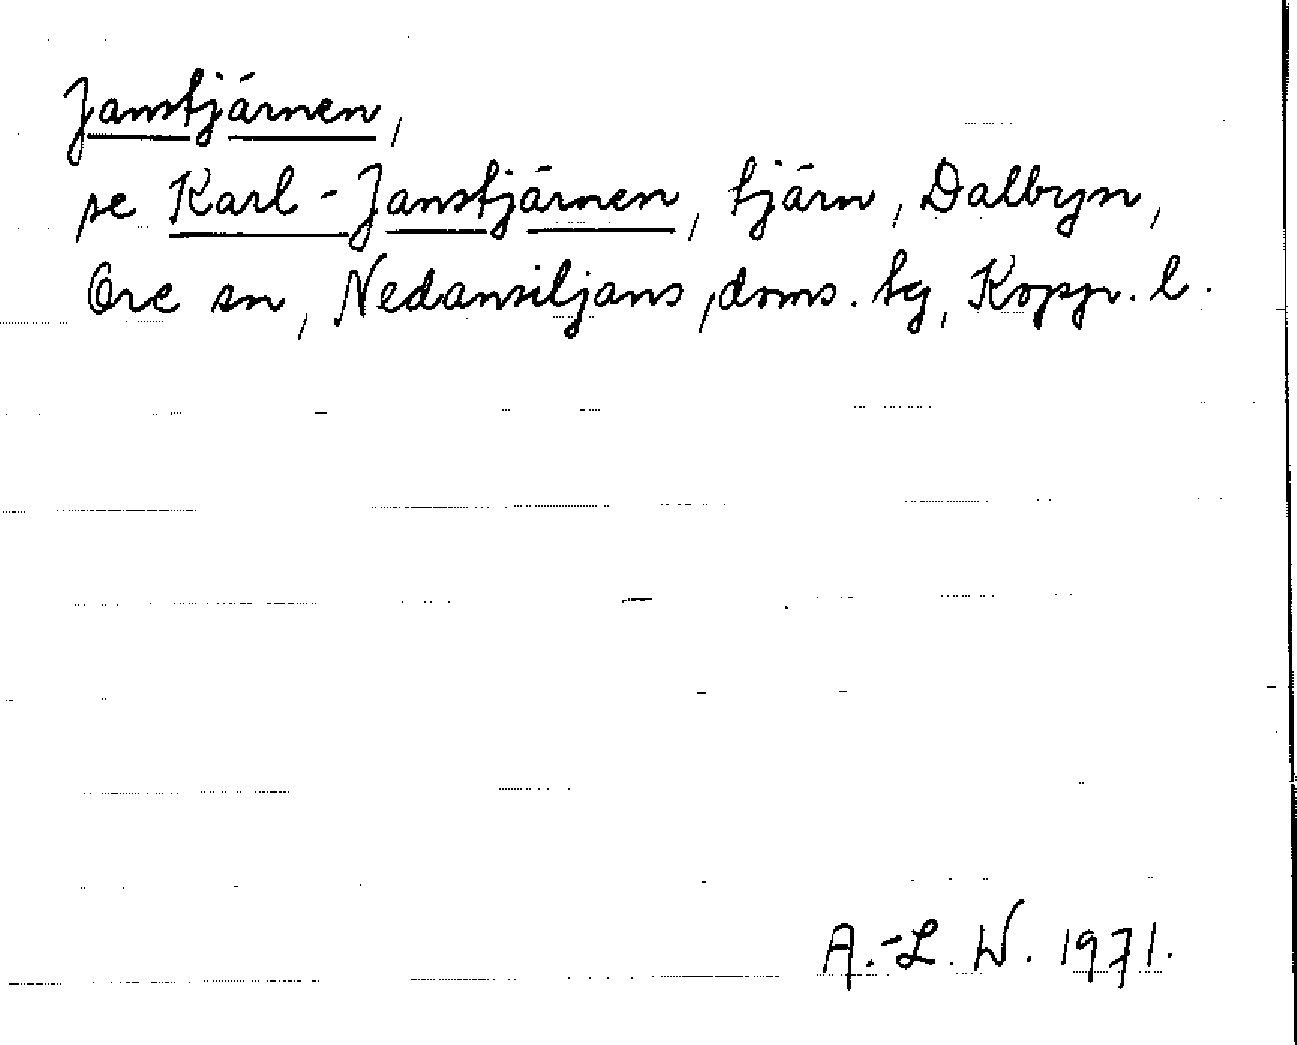 Janstjärnen,
se Karl-Janstjärnen, tjärn, Dalbyn,
Ore sn, Nedansiljans, doms. tg, Kopp. l.
A.-L. W. 1971.